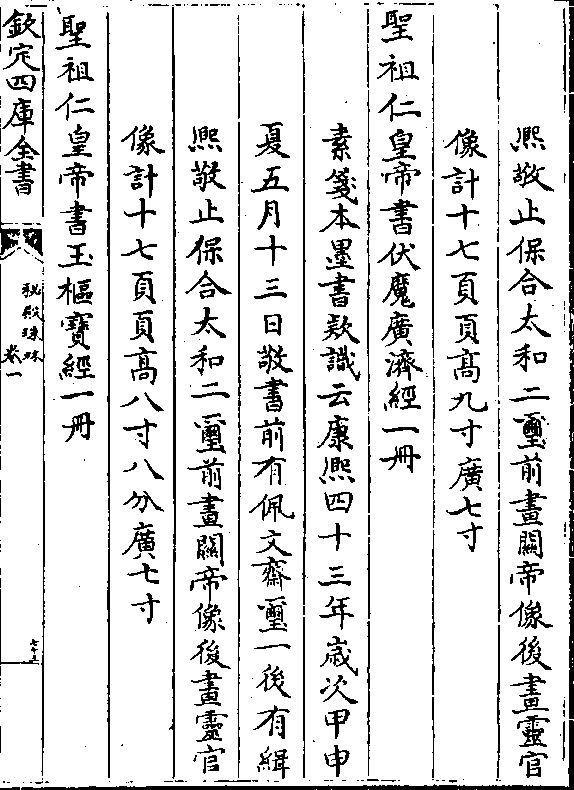 熈敬止保合太和二璽前畫闗帝像後畫靈官
像計十七頁頁髙九寸廣七寸
聖祖仁皇帝書伏魔廣濟經一冊
素箋本墨書欵識云康熈四十三年嵗次甲申
夏五月十三日敬書前有佩文齋璽一後有緝
熈敬止保合太和二璽前畫闗帝像後畫靈官
像計十七頁頁髙八寸八分廣七寸
聖祖仁皇帝書玉樞寶經一冊
欽定四庫全書
秘殿珠林
卷一